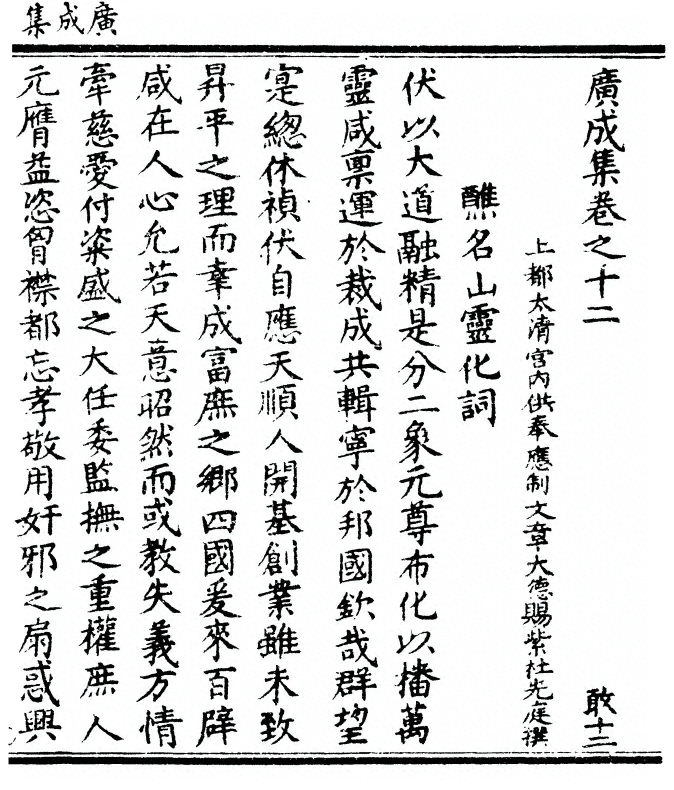 廣成集
廣成集卷之十二
敢十二
上都太清宫内供奉應制文章大德賜紫杜光庭撰
醮名山靈化詞
伏以大道融精是分二象元尊布化以播萬
靈咸禀運於裁成共輯寧於邦國欽哉群望
寔緫休禎伏自應天順人開基創業雖未致
昇平之理而幸成富庶之鄉四國爰來百辟
咸在人心允若天意昭然而或教失義方情
牽慈愛付粢盛之大任委監撫之重權庶人
元膺益恣胷襟都忘孝敬用奸邪之扇惑興